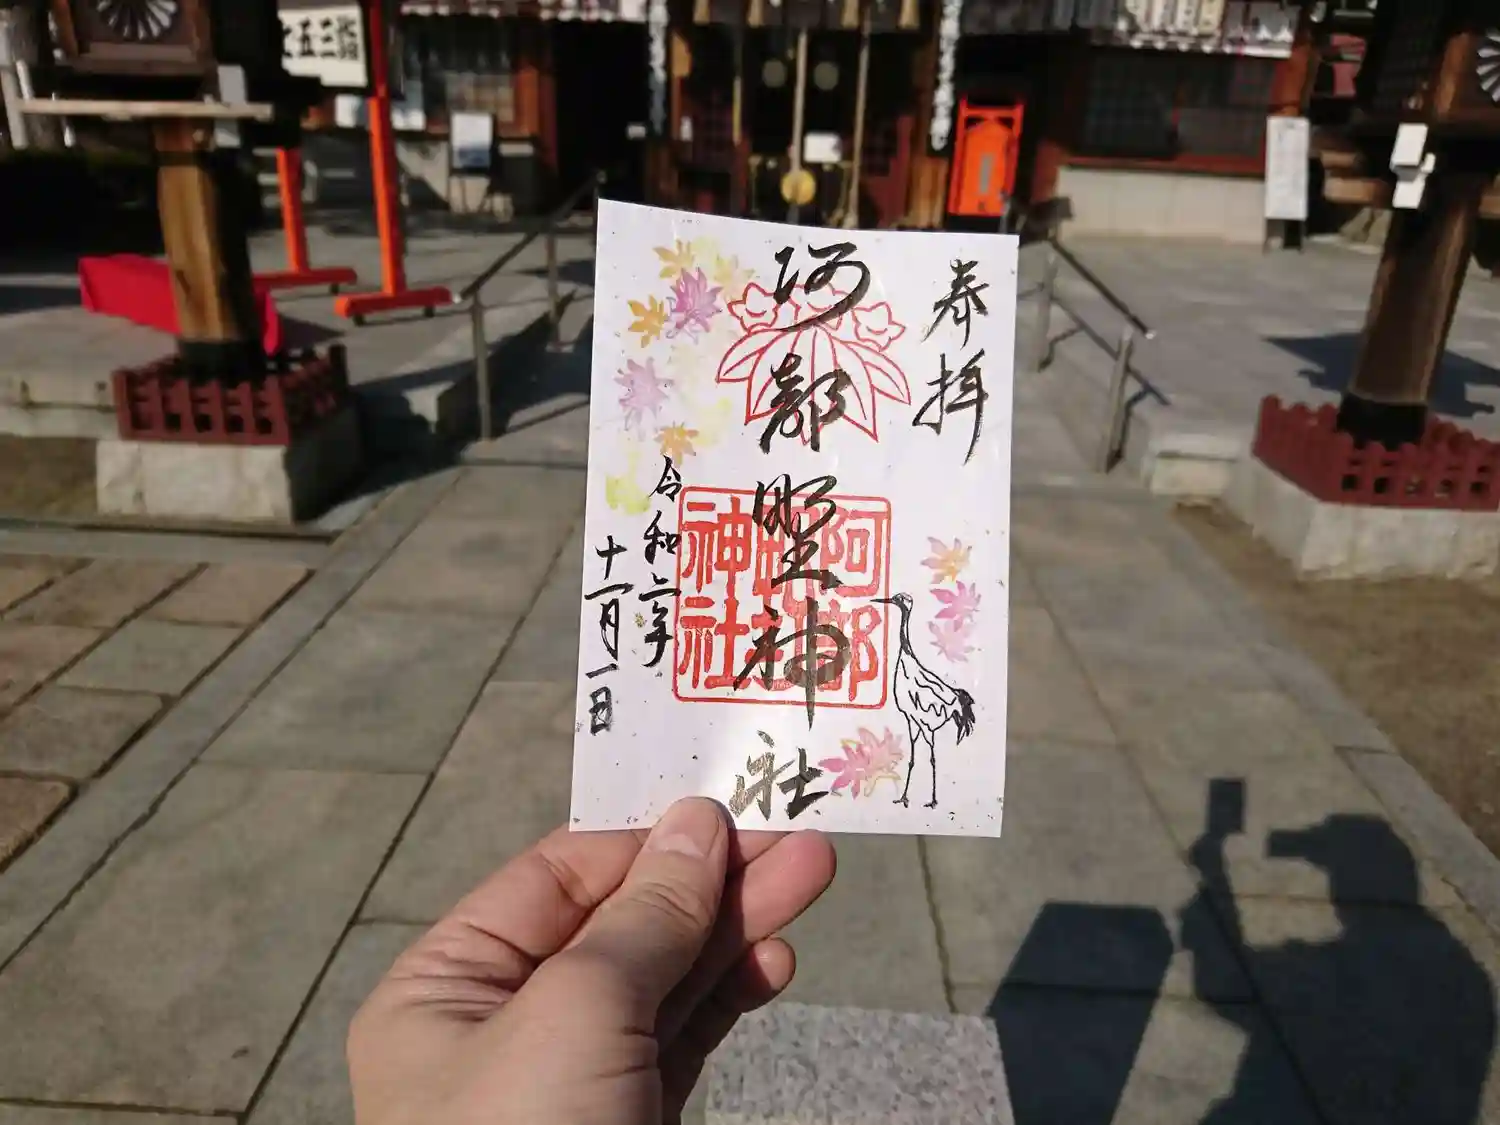 奉拝
阿部野神社
令和二年
十一月一日
阿部
野
神社
七五三